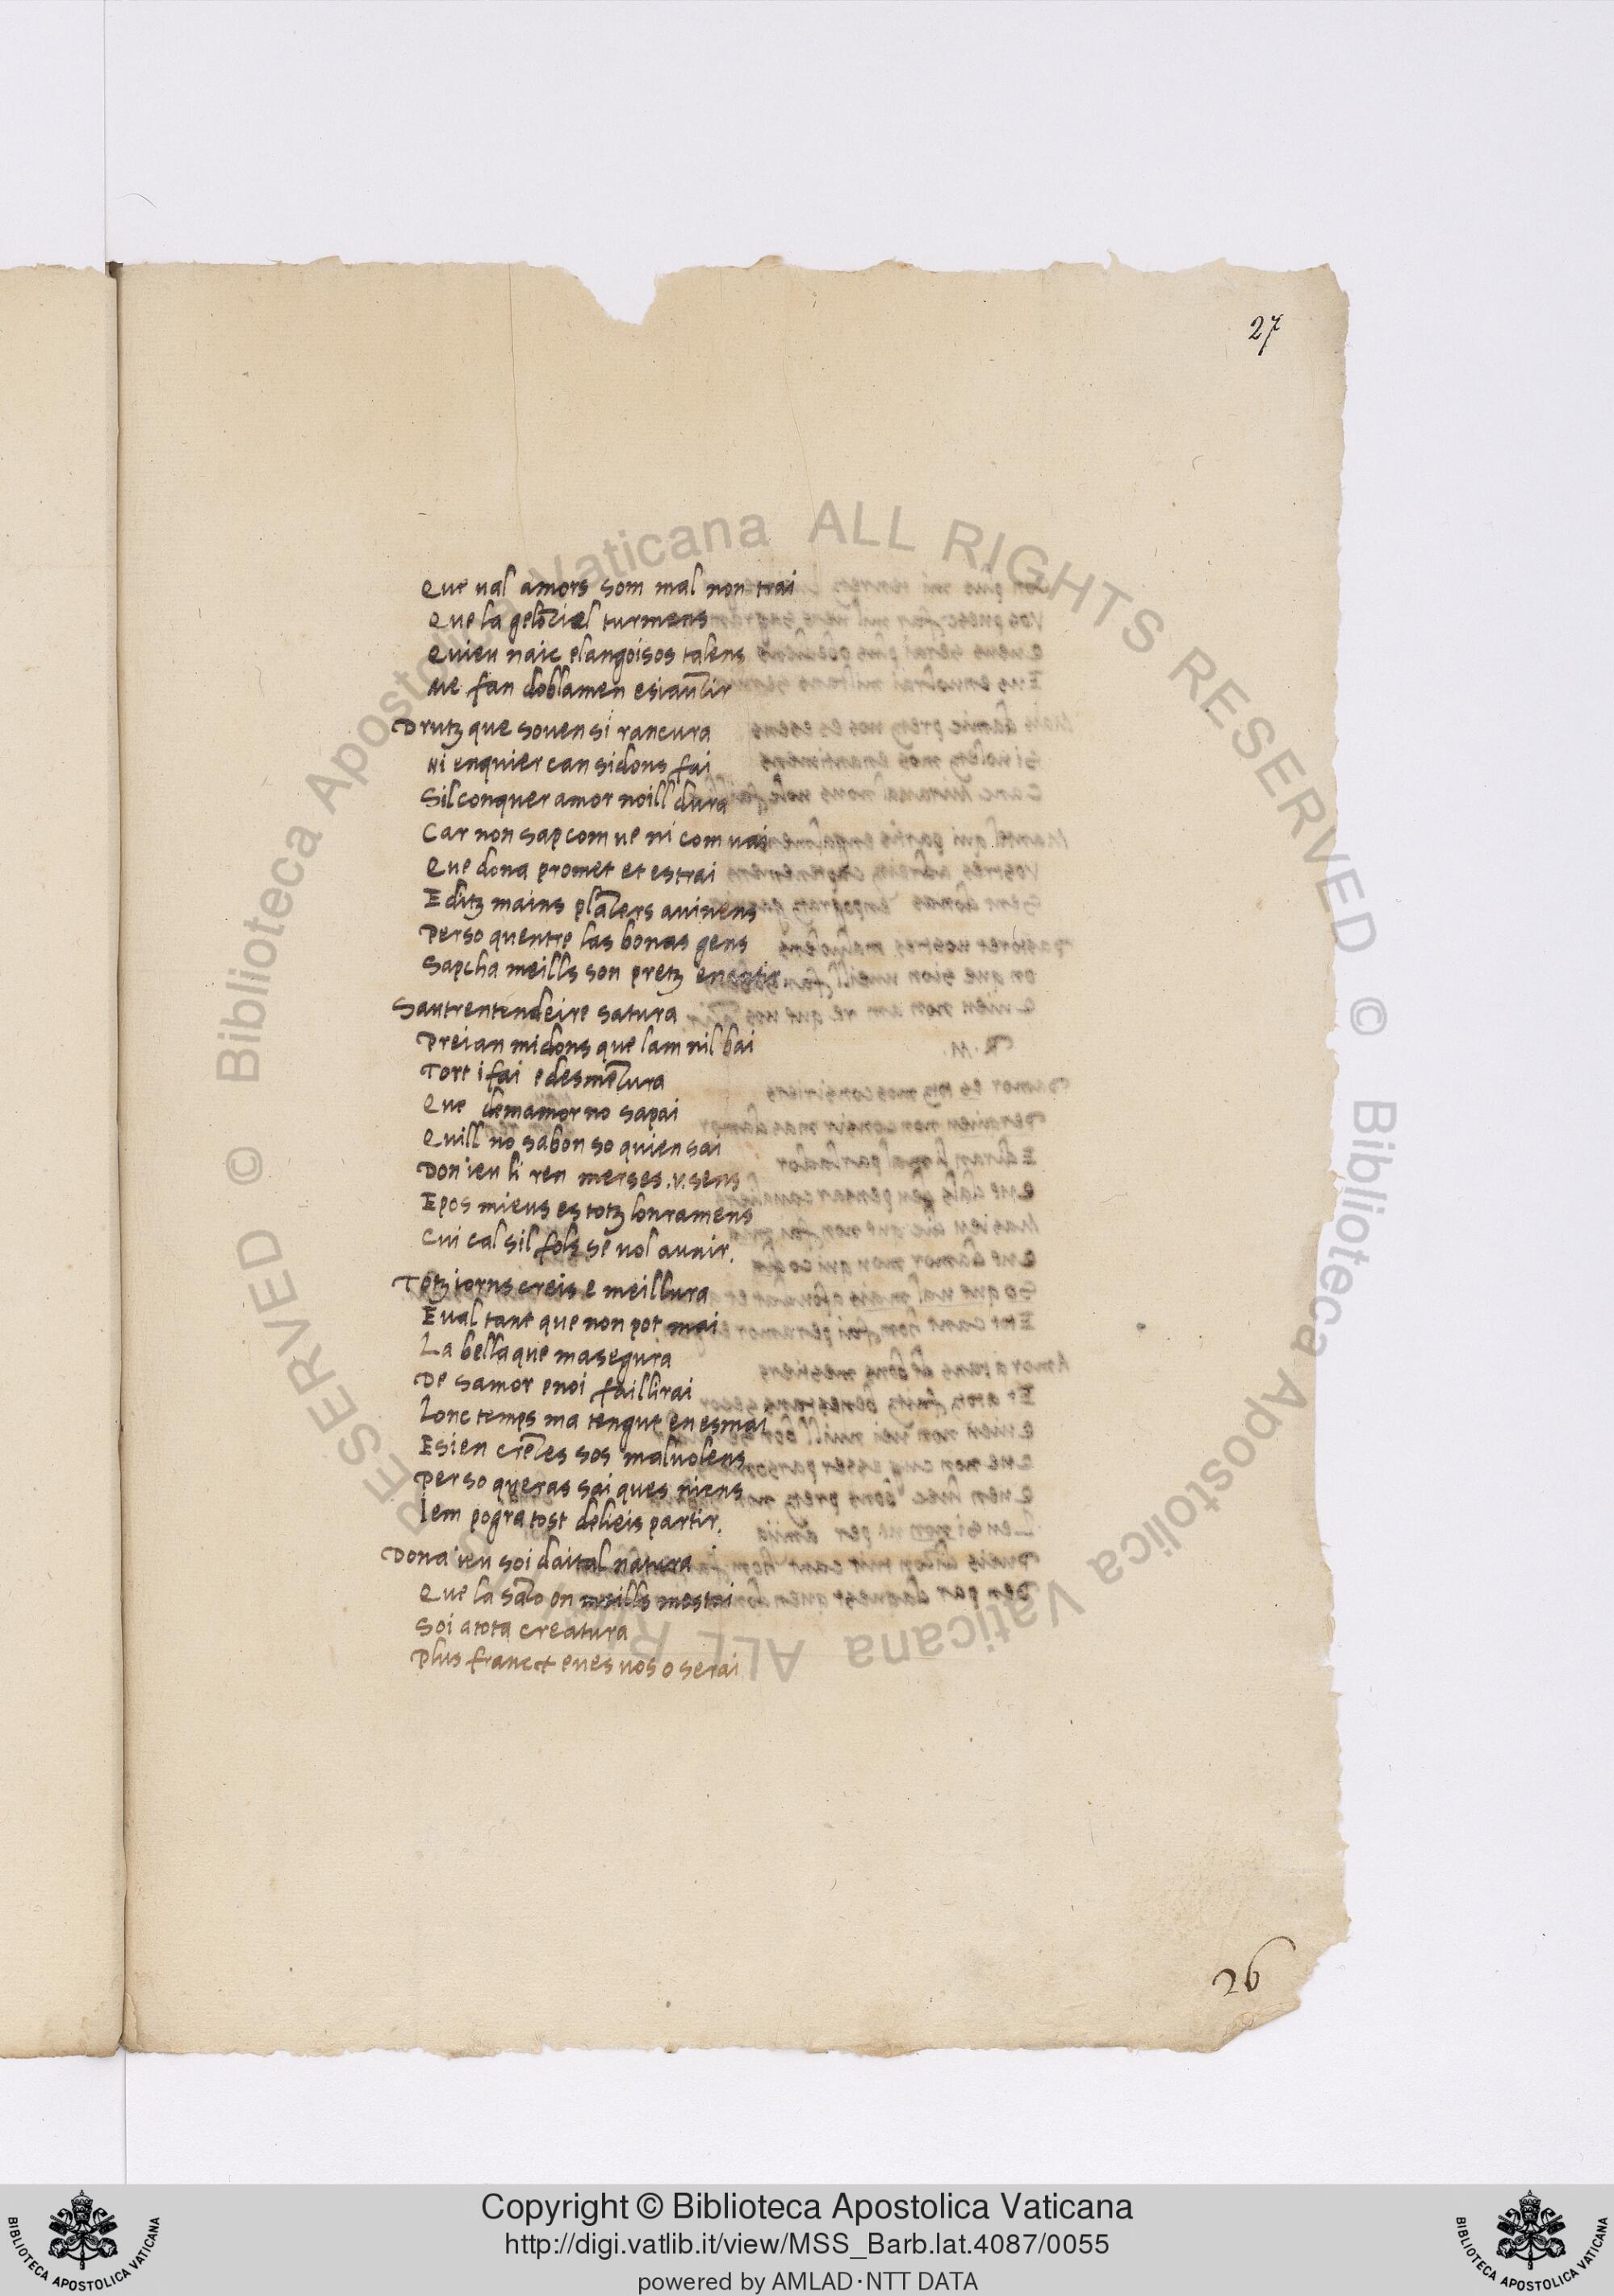 27
Que ual amors som mal non trai
Que la geloziel turmens
Quieu naic elangoisos talens
Me fan doblamen esiauzir
Drutz que souen si rancura
Ni enquier can sidons fai
Sil conquer amor noill dura
Car non sap com ue ni com uai
Que dona promet et estrai
E ditz mains plazers auinens
Perso quentre las bonas gens
Sapcha meills son pretz enantir
Sautrentendeire satura
Preian midons que lam nil bai
Tort i fai e desmezura
Que demamor no sapai
Quill no sabon so quieu sai
Don ieu li ren merses .v. sens
E pos mieus es totz lonramens
Cui cal sil fols se uol auzir.
Totz iorns creis e meillura
E ual tant que non pot mai
La bella que masegura
De samor e noi faillirai
Lonc temps ma tengut en esmai
E sieu crezes sos maluolens
Perso queras sai ques niens
Iem pogra tost de lieis partir.
Dona ieu soi daital natura
Que la sazo on meills mestai
Soi a tota creatura
Plus franc et eues uos o serai
26
© Biblioteca Apostolica Vaticana ALL RIGHTS RESERVED © Biblioteca Apostolica Vaticana ALL RIGHTS RESERVED
Copyright © Biblioteca Apostolica Vaticana
http://digi.vatlib.it/view/MSS_Barb.lat.4087/0055
powered by AMLAD·NTT DATA
BIBLIOTECA APOSTOLICA VATICANA
BIBLIOTECA APOSTOLICA VATICANA